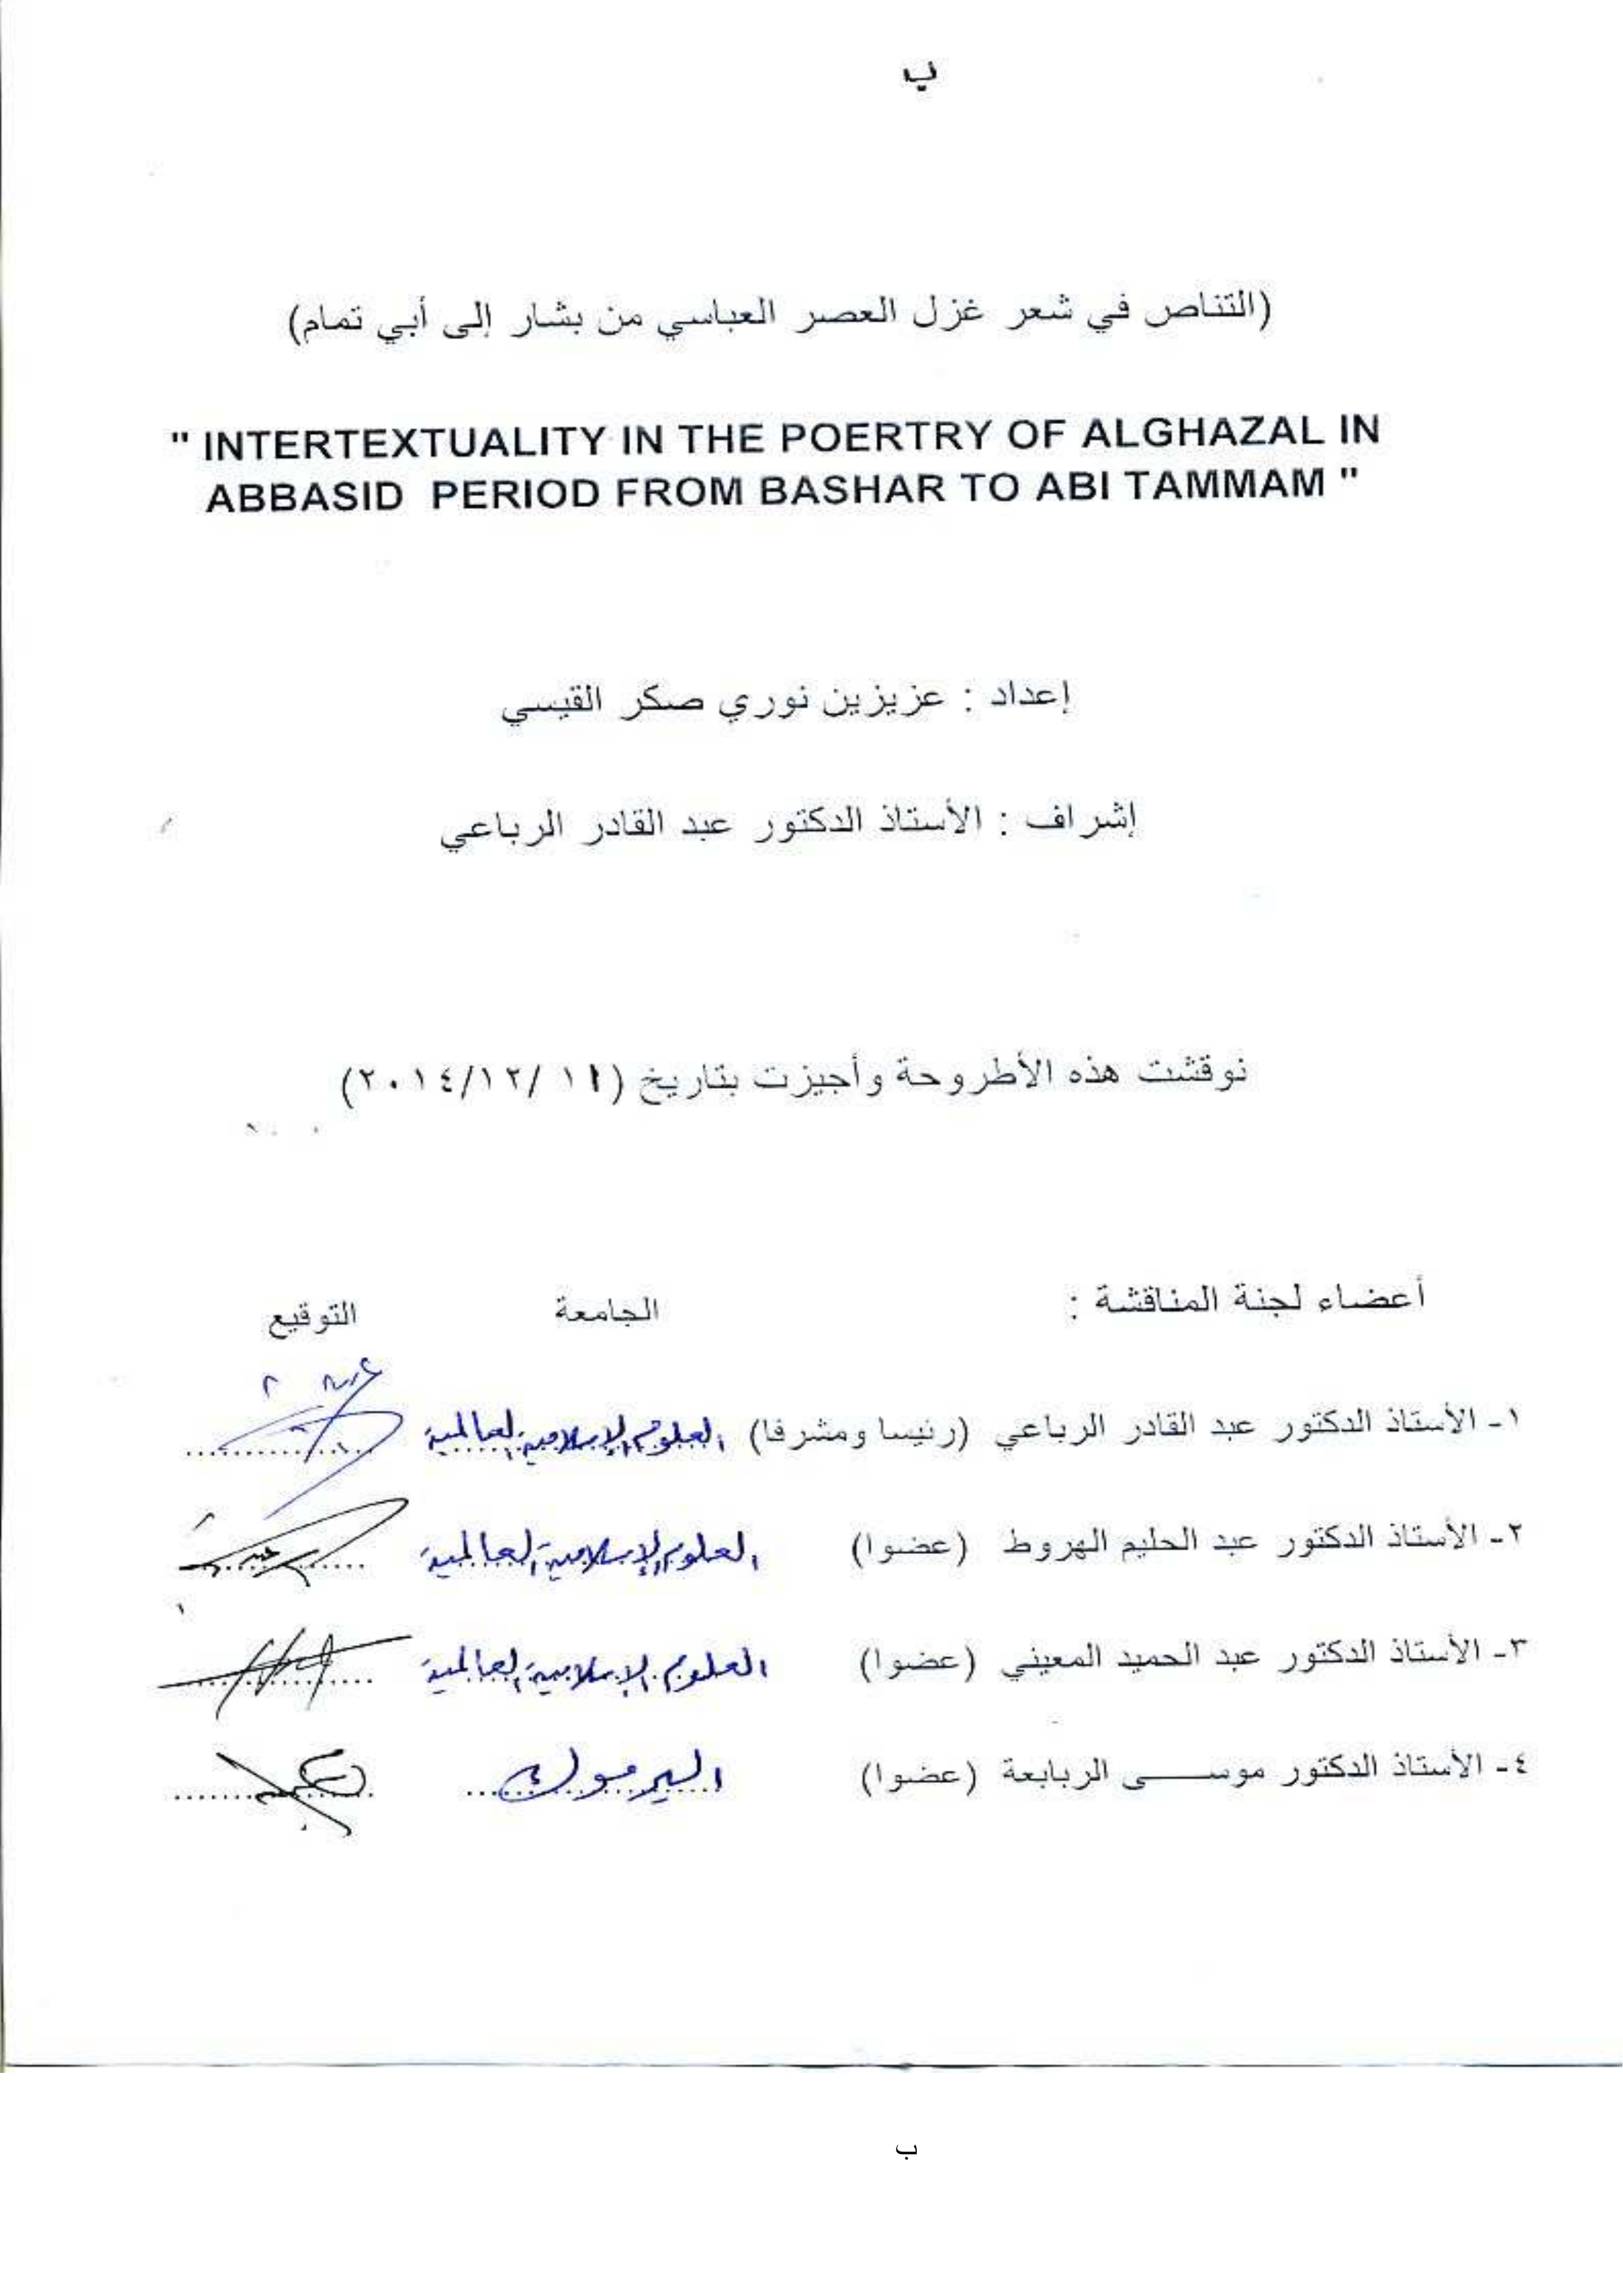 ب
(التناص في شعر غزل العصر العباسي من بشار إلى أبي تمام)
" INTERTEXTUALITY IN THE POERTRY OF ALGHAZAL IN
ABBASID PERIOD FROM BASHAR TO ABI TAMMAM "
إعداد : عزيزين نوري صكر القيسي
إشراف : الأستاذ الدكتور عبد القادر الرباعي
نوقشت هذه الأطروحة وأجيزت بتاريخ (١١ /١٢/٢٠١٤)
أعضاء لجنة المناقشة : الجامعة التوقيع
١- الأستاذ الدكتور عبد القادر الرباعي (رئيسا ومشرفا) العلوم الإسلامية العالمية
٢- الأستاذ الدكتور عبد الحليم الهروط (عضوا) العلوم الإسلامية العالمية
٣- الأستاذ الدكتور عبد الحميد المعيني (عضوا) العلوم الإسلامية العالمية
٤- الأستاذ الدكتور موســـى الربابعة (عضوا) اليرموك
ب